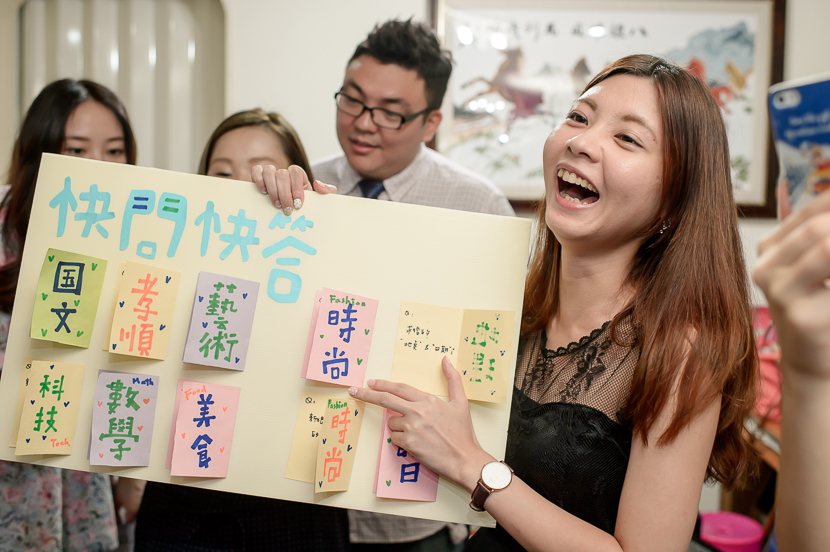 快問快答
国文
孝順
藝術
Fashion
時尚
求婚的
"地點"&"日期"
科技
Tech
Math
數學
Food
美食
Q:
Fashion
時尚
日